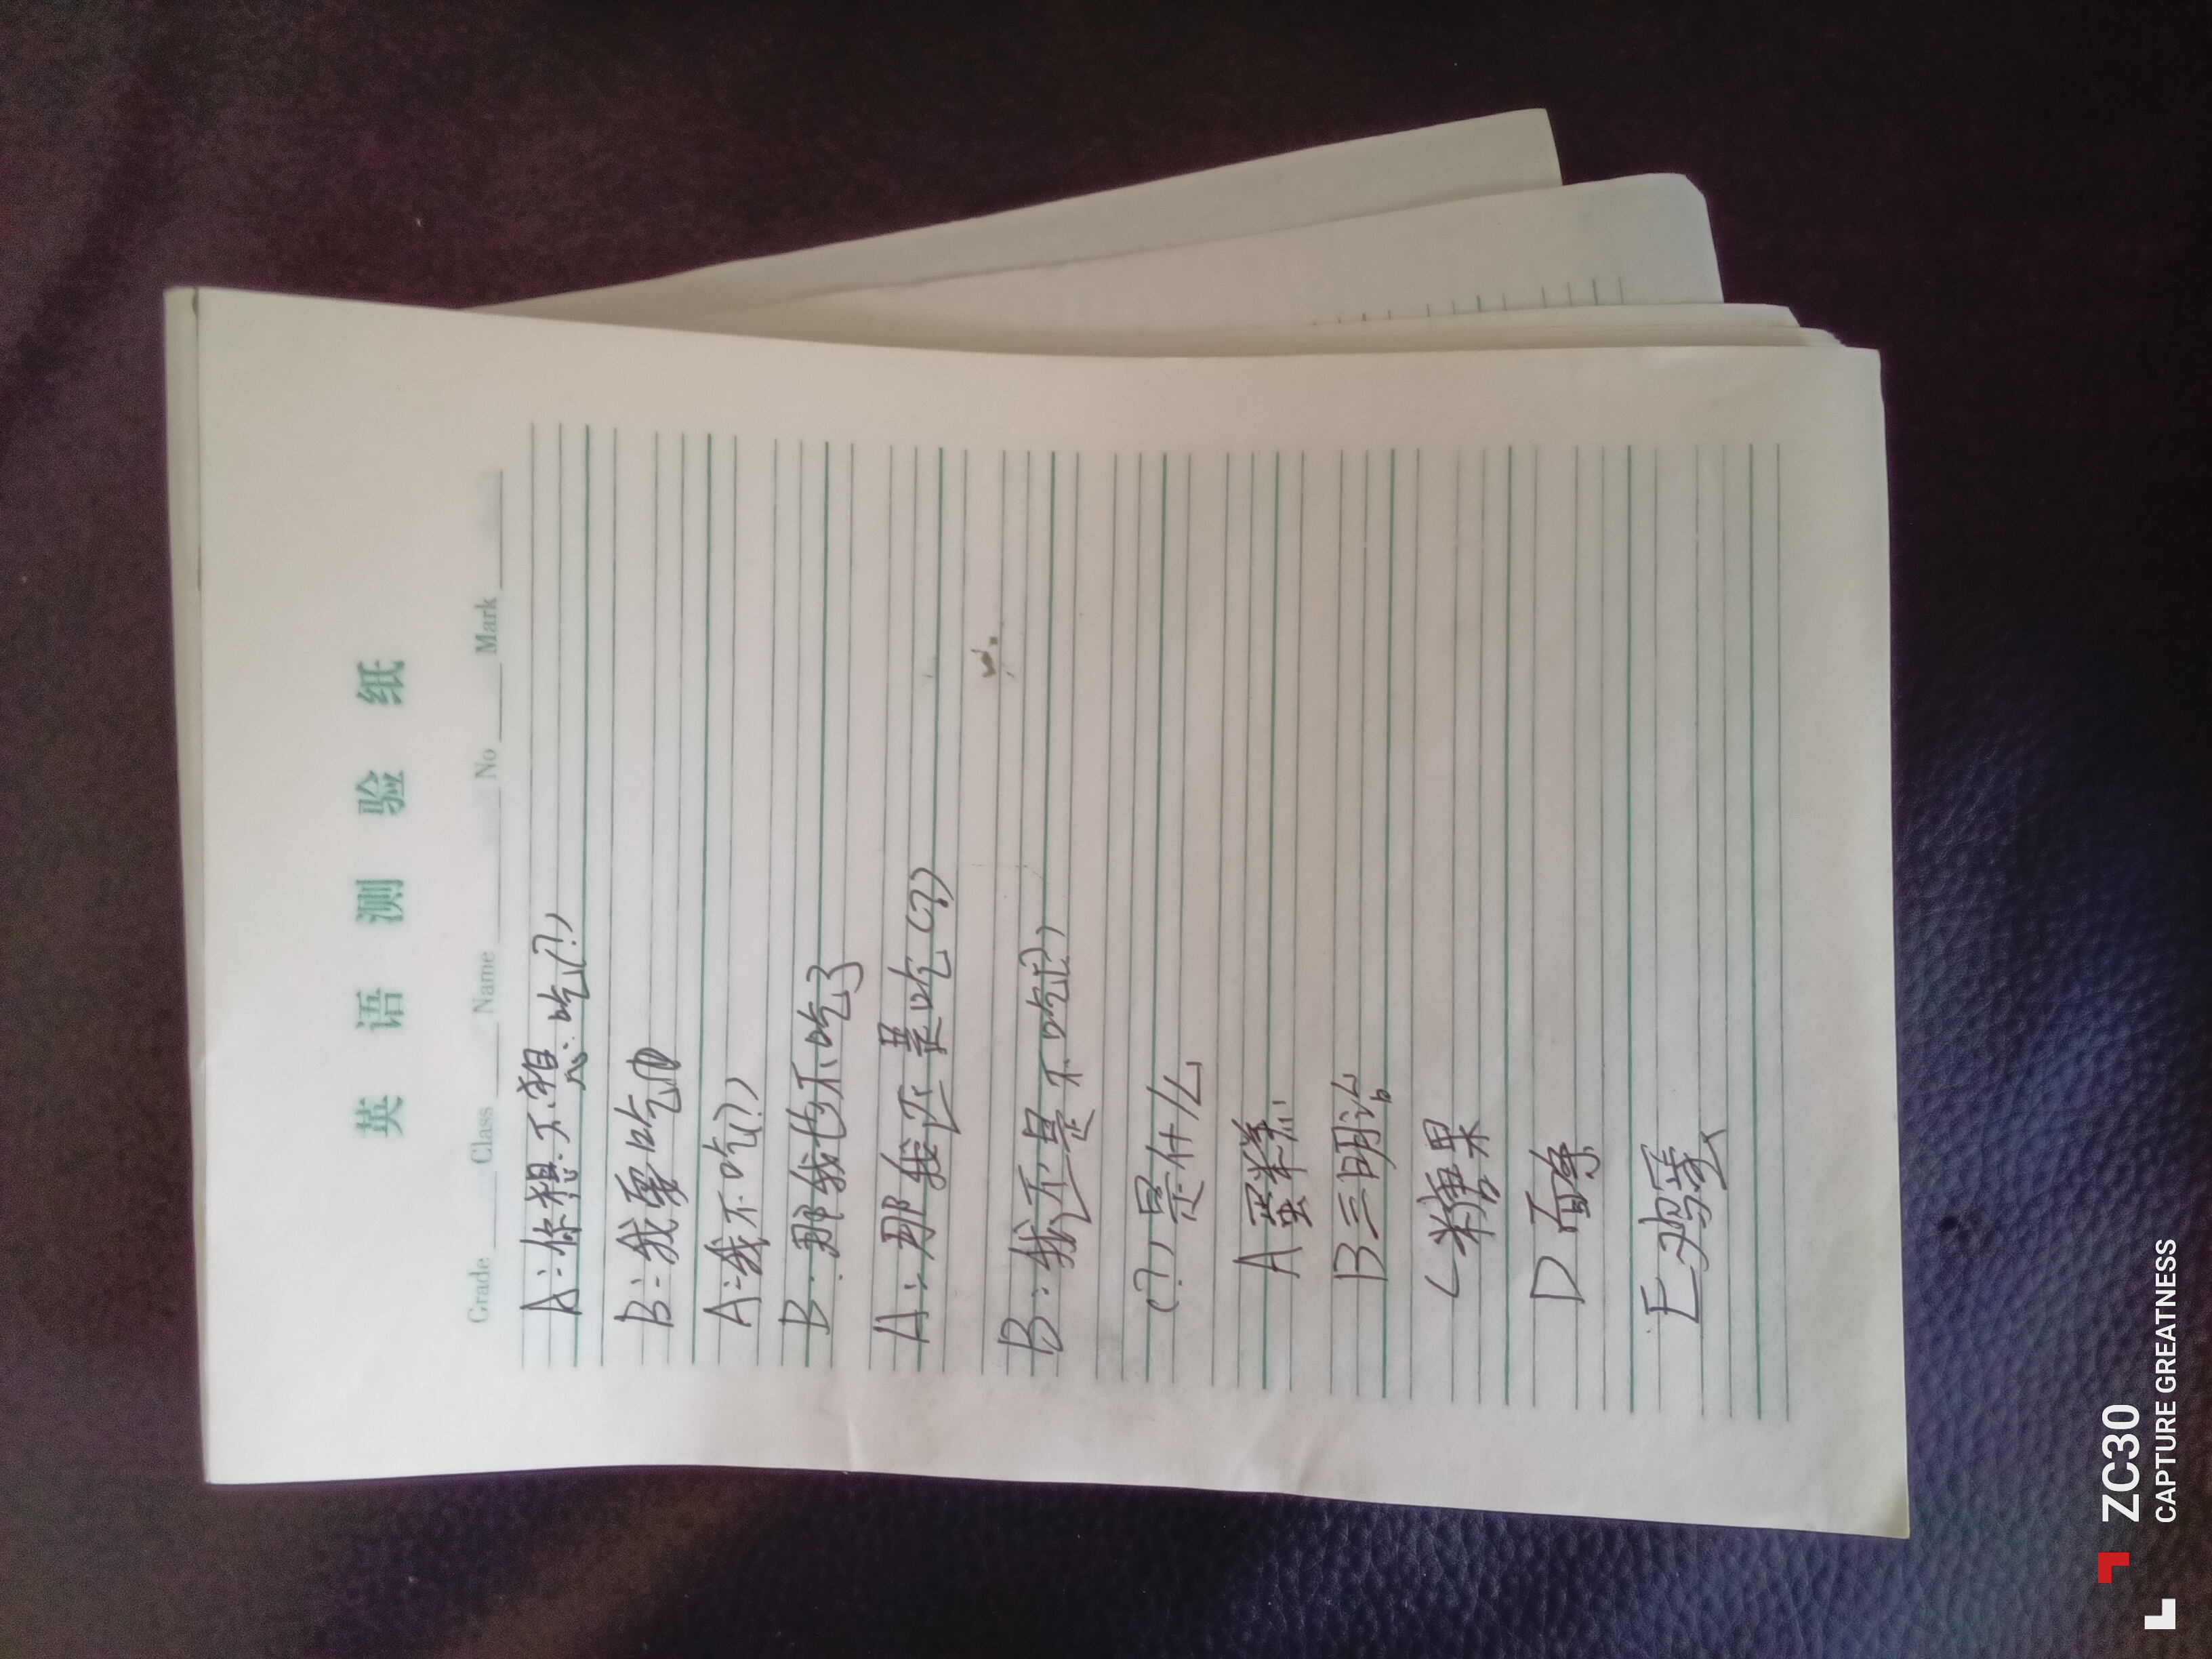 英语测验纸
Grade Class Name No Mark
A：你想不想吃(?)
B：我要吃
A：我不吃(?)
B：那我也不吃了
A：那我还是吃(?)
B：我还是不吃(?)
(?)是什么
A 蛋糕
B 三明治
C 糖果
D 面条
E 鸡蛋
ZC30
CAPTURE GREATNESS